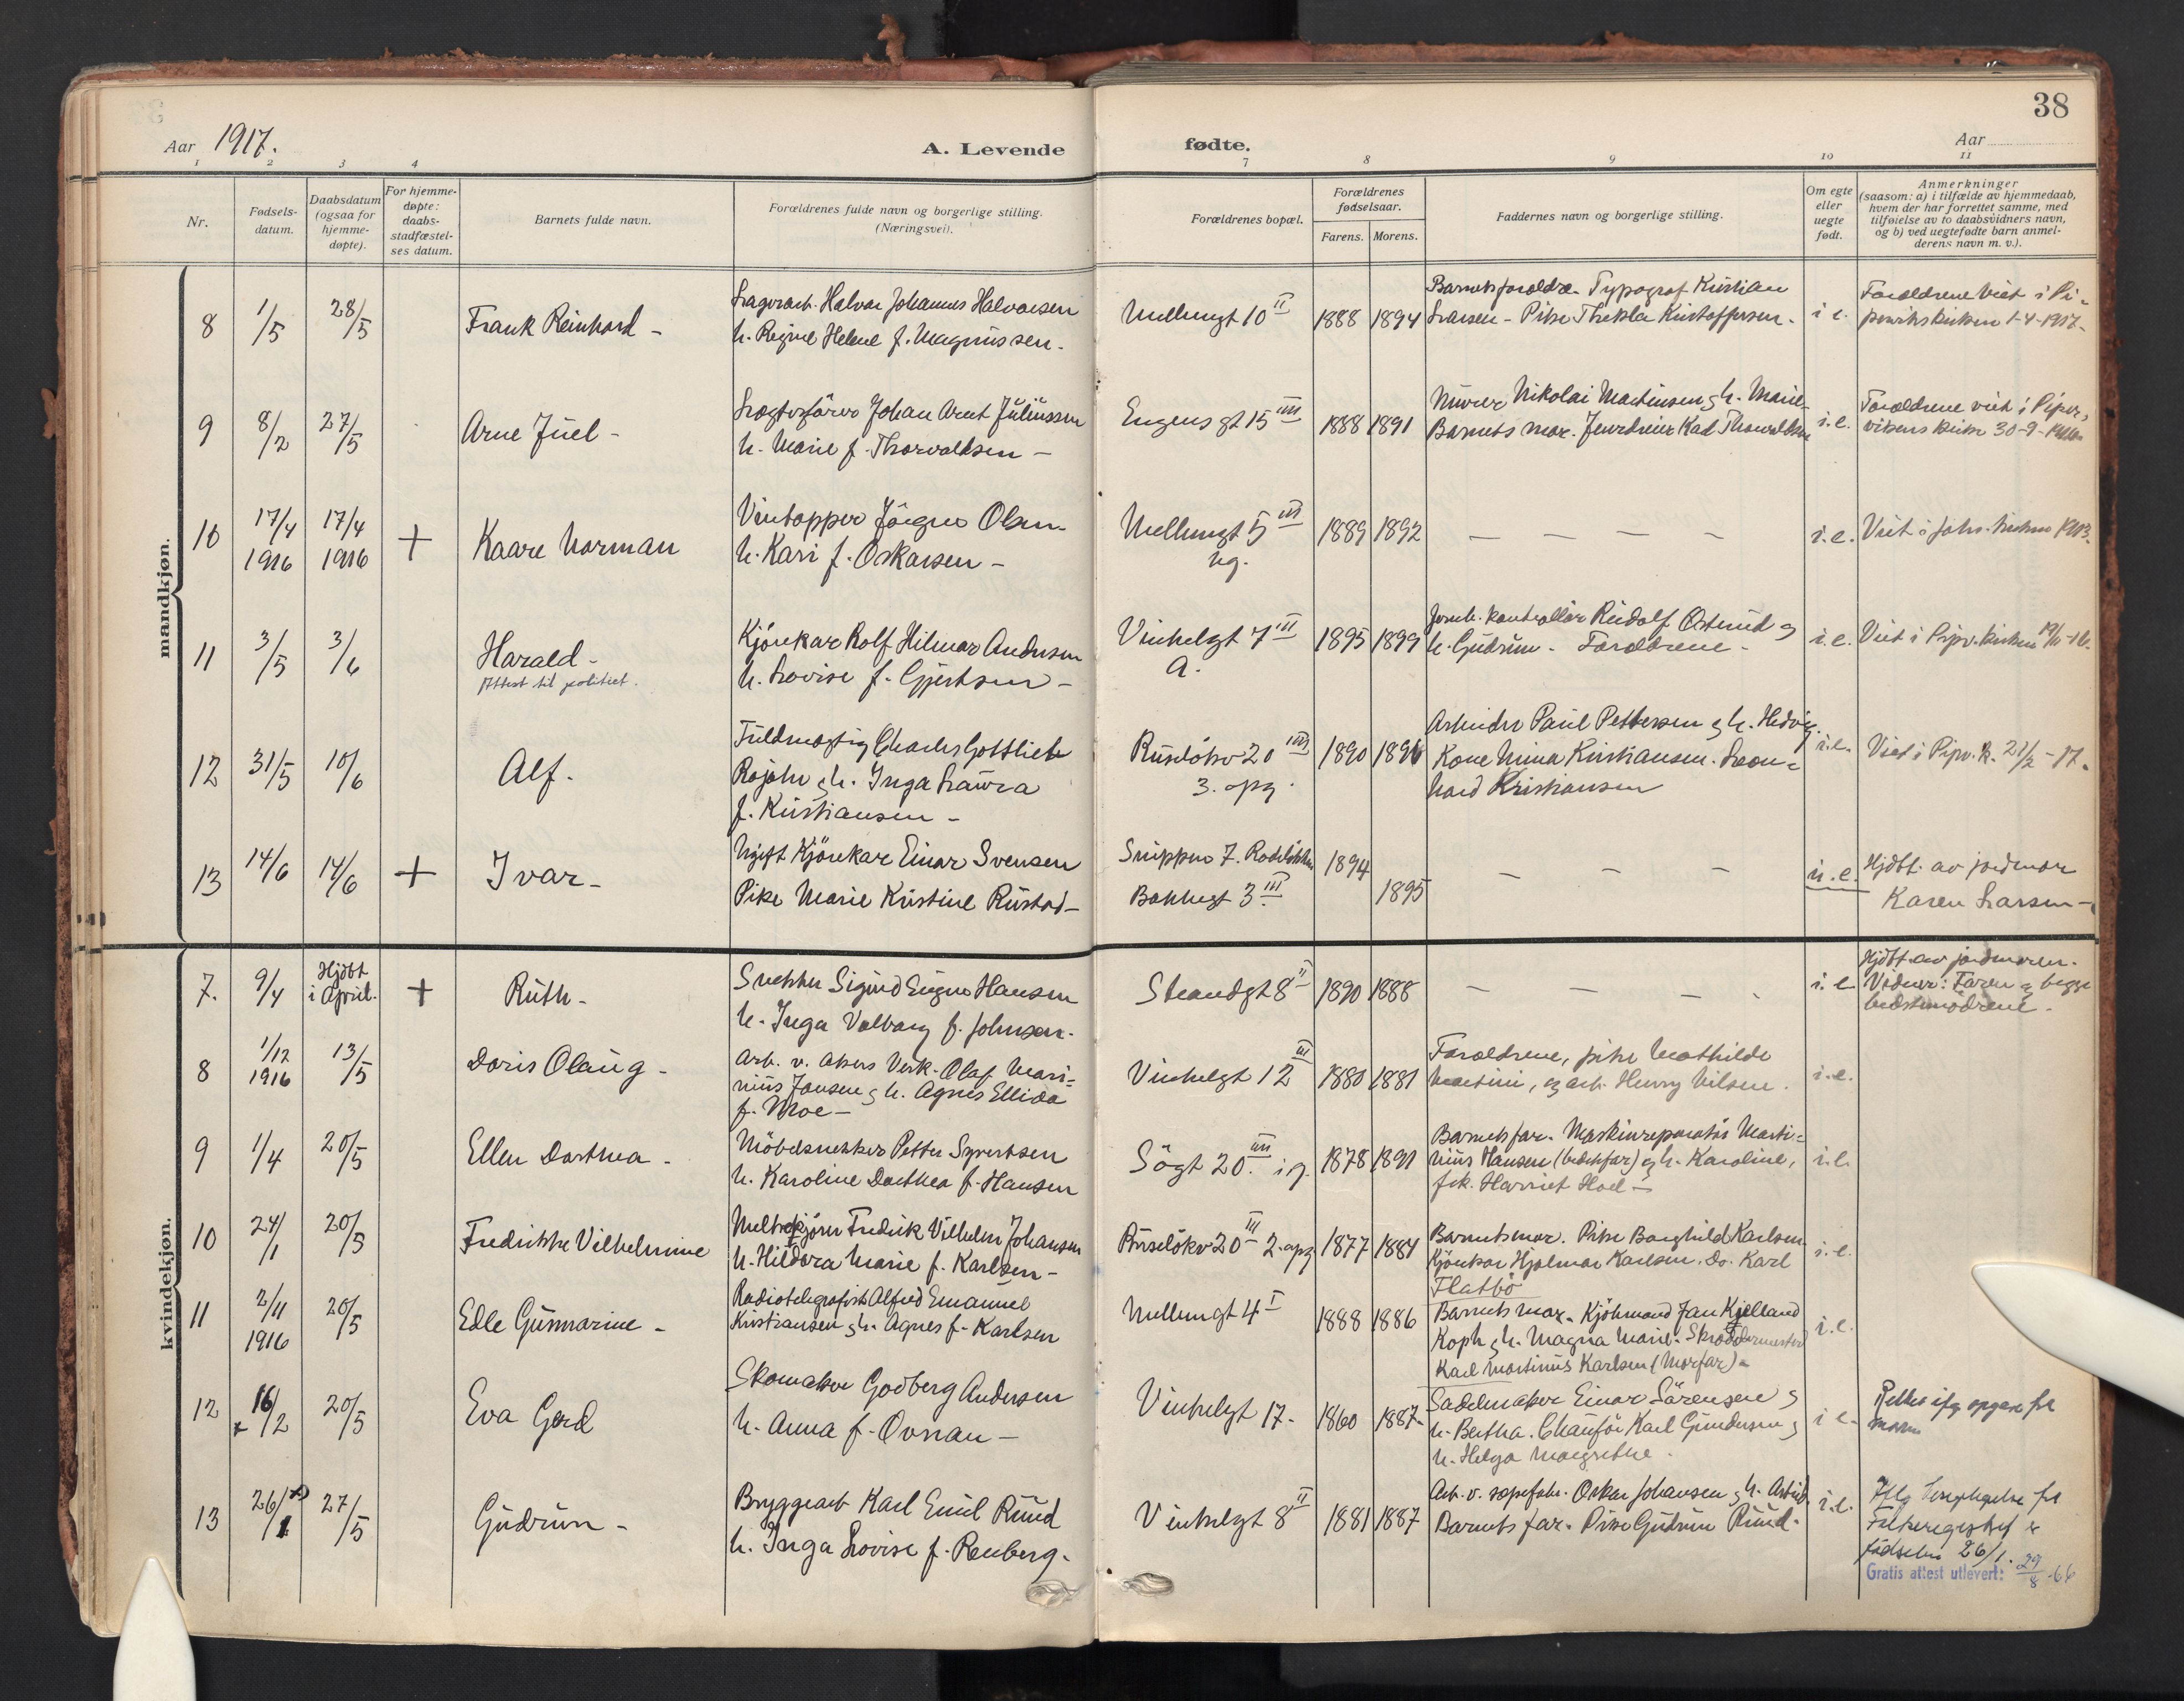 38
Aar 1917.
A. Levende
fødte.
Aar
1 2 3 4 7 8 9 10 11
Nr.
Fødsels-
datum.
Daabsdatum
(ogsaa for
hjemme-
døpte).
For hjemme-
døpte:
daabs-
stadfæstel-
ses datum.
Barnets fulde navn.
Forældrenes fulde navn og borgerlige stilling.
(Næringsvei).
Forældrenes bopæl.
Forældrenes
fødselsaar.
Farens. Morens.
Faddernes navn og borgerlige stilling.
Om egte
eller
uegte
født.
Anmerkninger
(saasom: a) i tilfælde av hjemmedaab,
hvem der har forrettet samme, med
tilføielse av to daabsvidners navn,
og b) ved uegtefødte barn anmel-
derens navn m. v.).
mandkjøn.
8
1/5
28/5
Frank Reinhard -
Lagerarb. Halvar Johannes Halvorsen
h. Regine Helene f. Magnussen.
Mellumgt 10 II
1888 1894
Barnets foreldre. Typograf Kristian
Larsen - Pike Thekla Kristoffersen.
i e.
Foreldrene viet i Pi-
pervikskirken 1-4-1917-
9
8/2
27/5
Arne Juel -
Johan Arnt Juliussen
h. Marie f. Thorvaldsen -
Engens gt 15 IIII
1888 1891
Murer Nikolai Martinsen & h. Marie-
Barnets mor. Karl Thorvaldsen
i. e.
Foreldrene viet i Piper-
vikens kirke 30-9-1916
10
17/4
1916
17/4
1916
+
Kaare Norman
Vintapper Jörgen Olsen
h. Kari f. Oskarsen -
Mellumgt 5 III
ug.
1889 1892
— — — —
i. e.
Viet i Johs. kirken 1913.
11
3/5
3/6
Harald -
Attest til politiet.
Kjörekar Rolf Hilmar Andersen
h. Lovise f. Gjertsen -
Vinkelgt 7 III
A.
1895 1899
Jernb. kontrollör Rudolf Östrud &
h. Gudrun - Foreldrene -
i. e.
Viet i Pipv. kirken 19/11-16.
12
31/5
10/6
Alf.
Fuldmægtig Charles Gottlieb
Rojahn & h. Inga Laura
f. Kristiansen -
Ruselökv 20 III
3. opg.
1890 1896
Arbeider Paul Pettersen & h. Hedvig.
Kone Mina Kristiansen. Leon-
hard Kristiansen
i. e.
Viet i Pipv. k. 21/2 - 17.
13
14/6
14/6
+
Ivar -
Ugift Kjörekar Einar Svensen
Pike Marie Kristine Rustad -
Snippen 7. Rodelökken
Bakkegt 3 III
1894
1895
— — —
u. e.
Hjdbt. av jordmor
Karen Larsen -
kvindekjøn.
7.
9/4
Hjdbt
i April.
+
Ruth -
Snekker Sigurd Eugen Hansen
h. Inga Valborg f. Johnsen.
Strandgt 8 II
1890 1888
— — — -
i. e.
Hjdbt. av jordmoren.
Vidner: Faren & begge
bedstemødrene -
8
1/12
1916
13/5
Doris Olaug -
Arb. v. Akers Verk. Olaf Mari-
nius Jansen & h. Agnes Ellida
f. Moe -
Vinkelgt 12 III
1880 1881
Foreldrene, pike Mathilde
Martini, & arb. Henry Nilsen.
i. e.
9
1/4
20/5
Ellen Dorthea -
Möbelsnekker Petter Syvertsen
h. Karoline Dorthea f. Hansen
Sögt 20. IIII i g.
1878 1891
Barnets far. Maskinreparatör Marti-
nius Hansen (bedstefar) & h. Karoline,
frk. Harriet Hoel -
i. e.
10
24/1
20/5
Fredrikke Vilhelmine
Melkekjörer Fredrik Vilhelm Johansen
h. Hildora Marie f. Karlsen -
Ruselökv 20 III 2. opg
1877 1881
Barnets mor. Pike Borghild Karlsen.
Kjörekar Hjalmar Karlsen. do. Karl
Flatbö
i. e.
11
2/11
1916
20/5
Edle Gunmarine -
Radiotelegrafist Alfred Emanuel
Kristiansen & h. Agnes f. Karlsen
Mellumgt 4 I
1888 1886
Barnets mor. Kjöbmand Jan Kjelland
Koph & h. Magna Marie. Skræddermester
Karl Martinius Karlsen (Morfar) -
i. e.
12
x 16/2
20/5
Eva Gerd
Skomaker Godberg Andersen
h. Anna f. Ovnan -
Vinkelgt 17 -
1860 1887 -
Sadelmaker Einar Sörensen &
h. Bertha. Chauför Karl Gundersen &
h. Helga Margrethe.
i e -
Rettet ifg opgave fra
moren
13
26/1 x)
27/5
Gudrun -
Bryggearb Karl Emil Ruud
h. Inga Lovise f. Renberg.
Vinkelgt 8 II
1881 1887
Arb. v. sæpefabr. Oskar Johansen & h. Astrid.
Barnets far. Pike Gudrun Ruud.
i. e.
Iflg
Folkeregistret er
fødselen 26/1.
Gratis attest utlevert: 29/8 -66